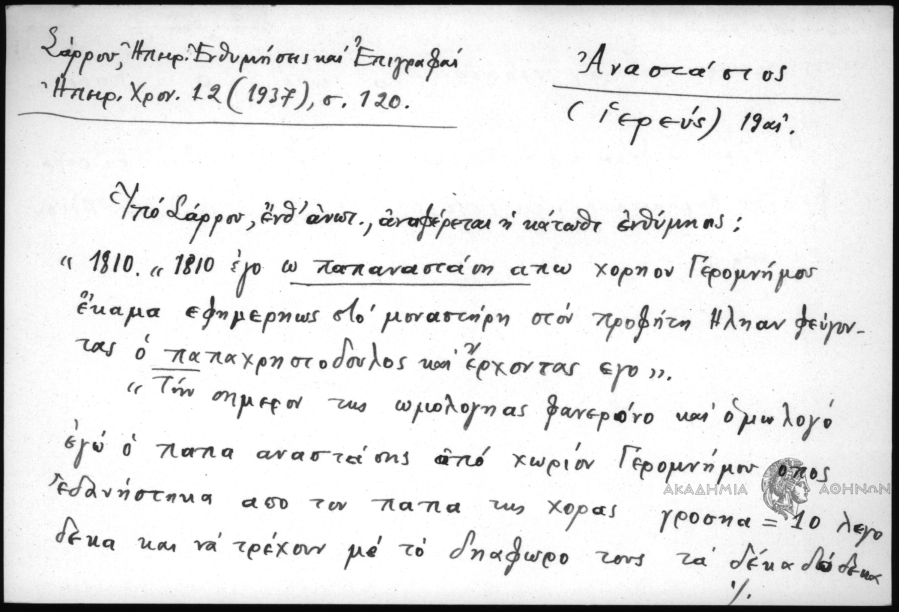 Σάρρου, Ἠπειρ. Ἐνθυμήσεις καὶ Ἐπιγραφαί
Ἠπειρ. Χρον. 12 (1937), σ. 120.
Ἀναστάσιος
(ἱερεύς) 19 αἰ.
Ὑπό Σάρρου, ἔνθ' ἀνωτ., ἀναφέρεται ἡ κάτωθι ἐνθύμησις:
" 1810. " 1810 ἐγο ω παπαναστάση απω χορηον Γερομνήμου
ἔκαμα εφημερηως στό μοναστήρη στόν προφήτη Ηληαν φεύγον-
τας ὁ παπαχρηστοδουλος και ἔρχοντας εγο ".
" Τήν σημερον της ωμολογηας φανερόνο και ὁμολογό
ἐγώ ὁ παπα αναστάσης ἀπό χωρίον Γερομνήμου οπος
ἐδανήστηκα απο τον παπα της χορας γροσηα = 10 λεγο
δεκα και νά τρέχουν μέ τό δηαφωρο τους τά δέκα δόδεκα
./.
ΑΚΑΔΗΜΙΑ ΑΘΗΝΩΝ